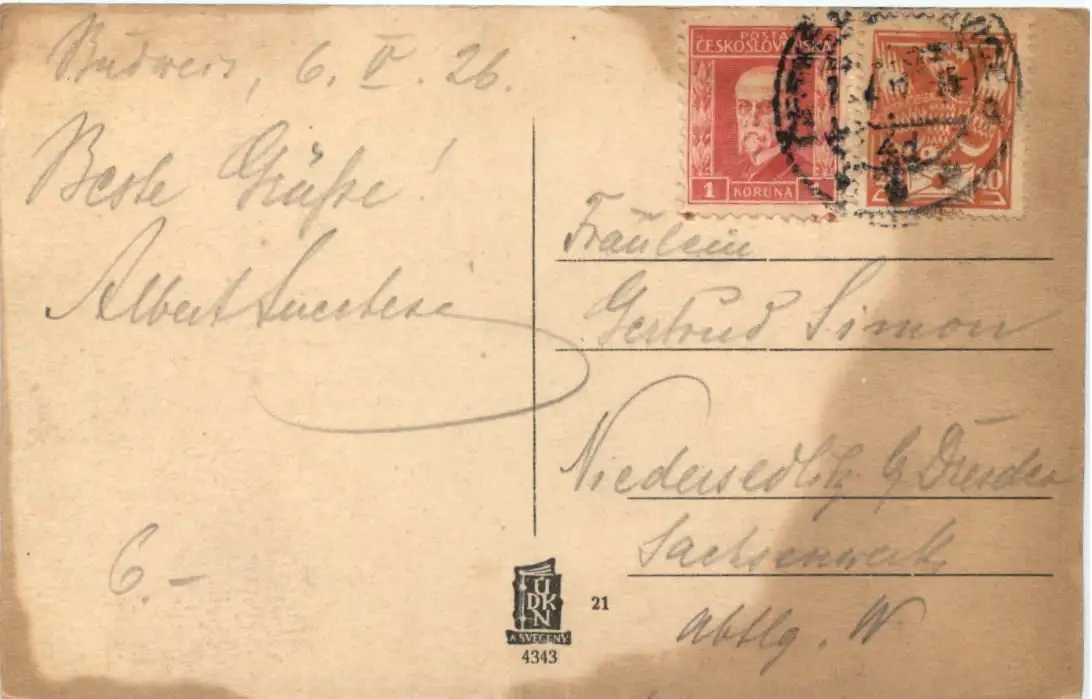 Budweis, 6. V. 26.
Beste Grüße!
Albert
POSTA
ČESKOSLOVENSKÁ
1 KORUNA
20
Fräulein
Gertrud Simon
Niedersedlitz b/ Dresden
Sachsenwerk,
Abtlg. W
6.-
UDKN
A SVECENY
4343
21